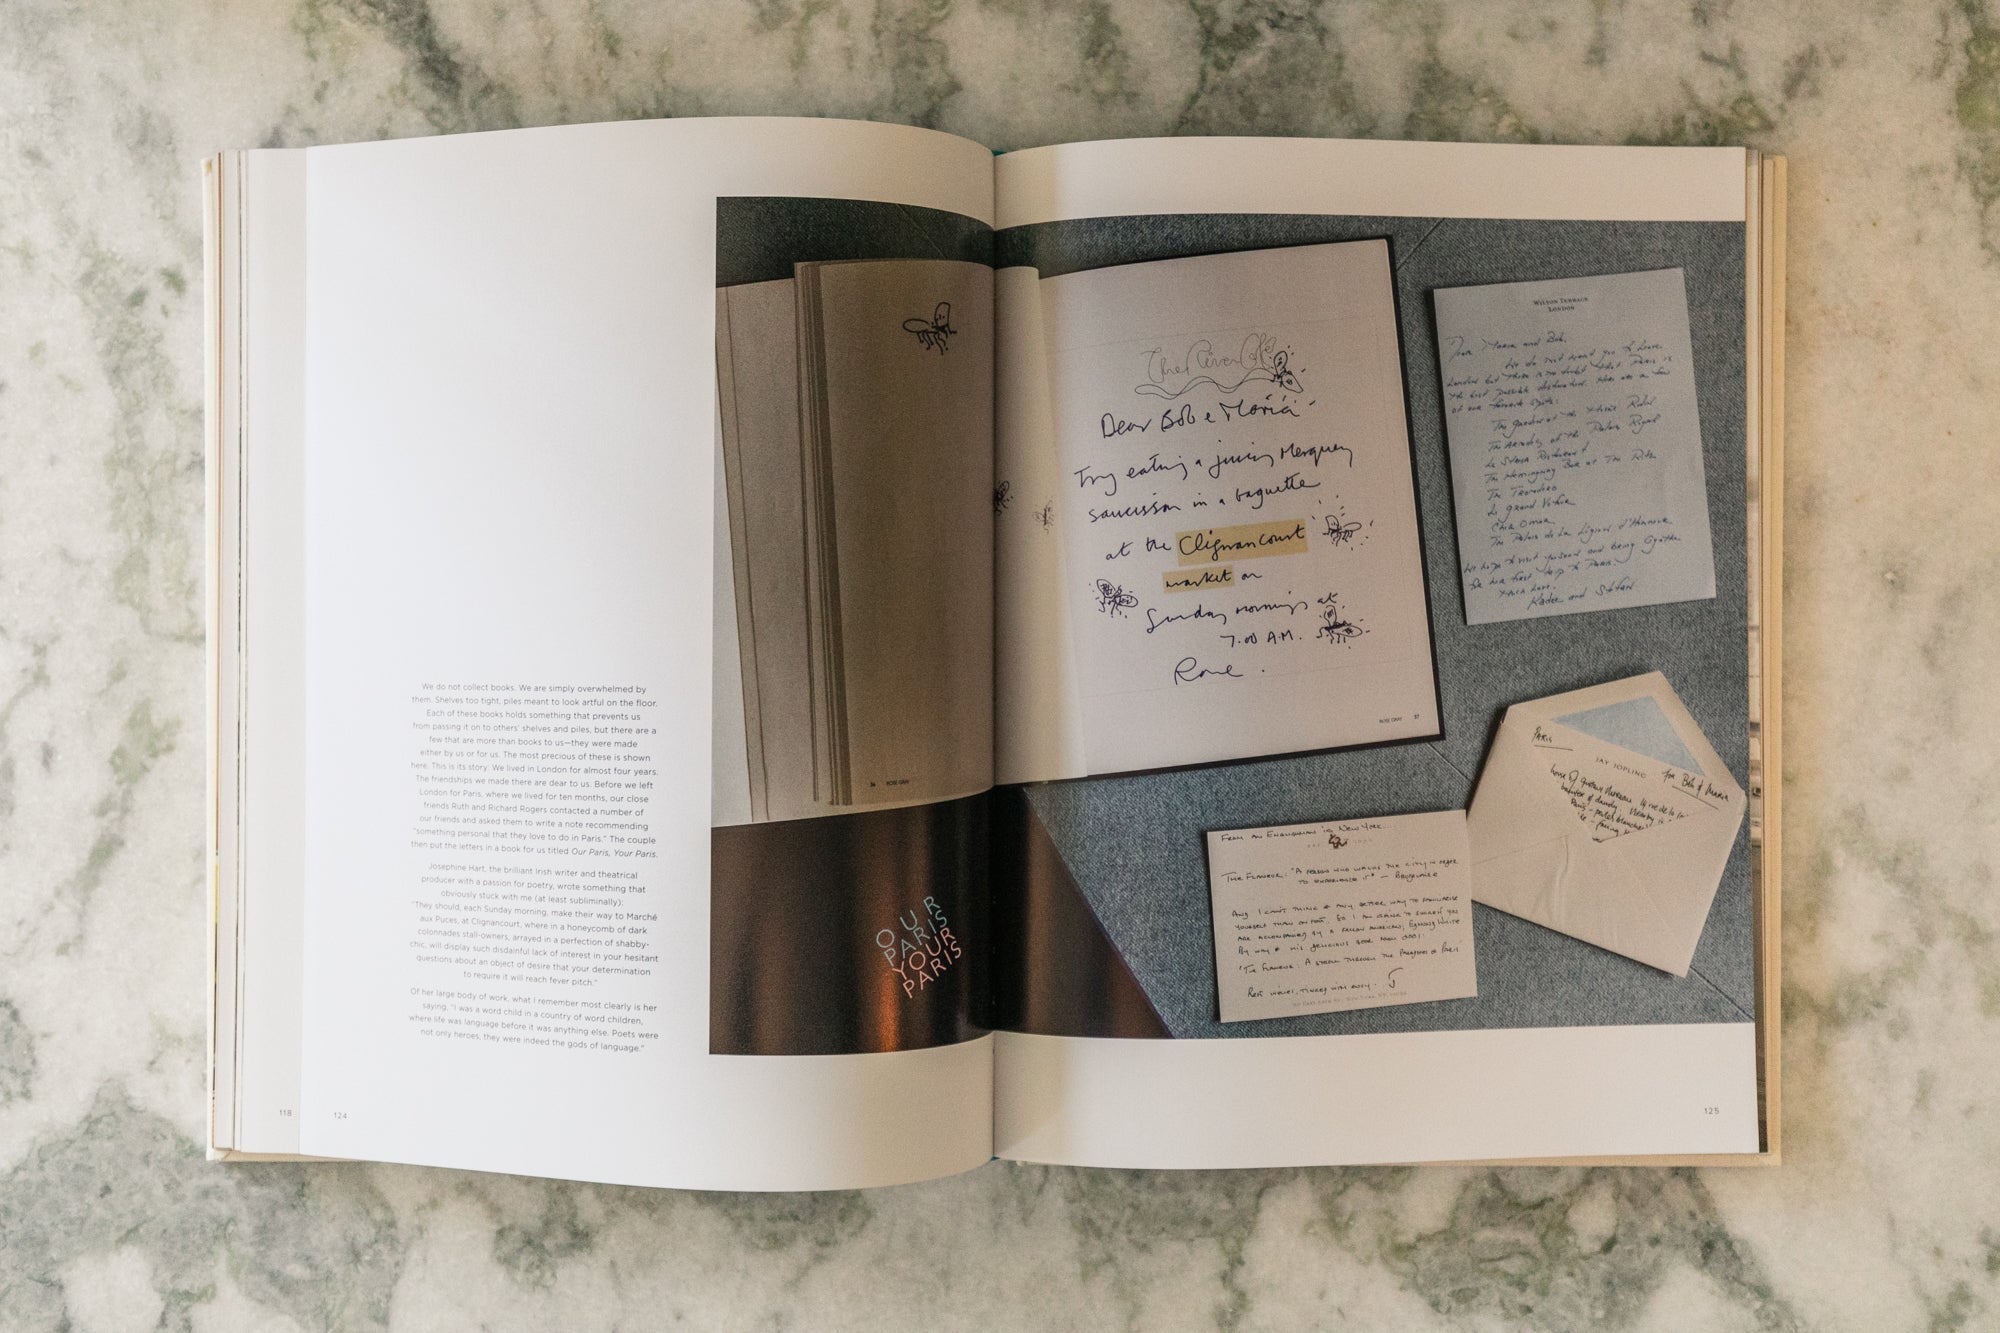 We do not collect books. We are simply overwhelmed by
them. Shelves too tight, piles meant to look artful on the floor.
Each of these books holds something that prevents us
from passing it on to others' shelves and piles, but there are a
few that are more than books to us—they were made
either by us or for us. The most precious of these is shown
here. This is its story: We lived in London for almost four years.
The friendships we made there are dear to us. Before we left
London for Paris, where we lived for ten months, our close
friends Ruth and Richard Rogers contacted a number of
our friends and asked them to write a note recommending
"something personal that they love to do in Paris." The couple
then put the letters in a book for us titled Our Paris, Your Paris.
Josephine Hart, the brilliant Irish writer and theatrical
producer with a passion for poetry, wrote something that
obviously stuck with me (at least subliminally):
"They should, each Sunday morning, make their way to Marché
aux Puces, at Clignancourt, where in a honeycomb of dark
colonnades stall-owners, arrayed in a perfection of shabby-
chic, will display such disdainful lack of interest in your hesitant
questions about an object of desire that your determination
to require it will reach fever pitch."
Of her large body of work, what I remember most clearly is her
saying, "I was a word child in a country of word children,
where life was language before it was anything else. Poets were
not only heroes, they were indeed the gods of language."
118
124
36 ROSE GRAY
OUR
PARIS
YOUR
PARIS
The River Café
Dear Bob e Maria -
Try eating a juicy Merguez
saucisson in a baguette
at the Clignancourt
market on
Sunday mornings at
7.00 A.M.
Rose.
ROSE GRAY 37
WILTON TERRACE
LONDON
Dear Maria and Bob,
We do not want you to leave
London but there is no doubt that Paris is
the best possible distraction. Here are a few
of our favourite spots:
The Arcades of the Palais Royal
The Hemingway Bar at The Ritz
Le Grand Vefour
Chez Omar
The Palais de la Légion d'Honneur
PARIS
JAY JOPLING
for Bob & Maria
FROM AN ENGLISHMAN IN NEW YORK...
THE FLANEUR: "A PERSON WHO WALKS THE CITY IN ORDER
TO EXPERIENCE IT" — BAUDELAIRE
AND I CAN'T THINK OF ANY BETTER WAY TO FAMILIARISE
YOURSELF THAN ON FOOT. SO I AM GOING TO SUGGEST YOU
ARE ACCOMPANIED BY A FELLOW AMERICAN, EDMUND WHITE
BY WAY OF HIS DELICIOUS BOOK
'THE FLANEUR: A STROLL THROUGH THE PARADOXES OF PARIS'
125